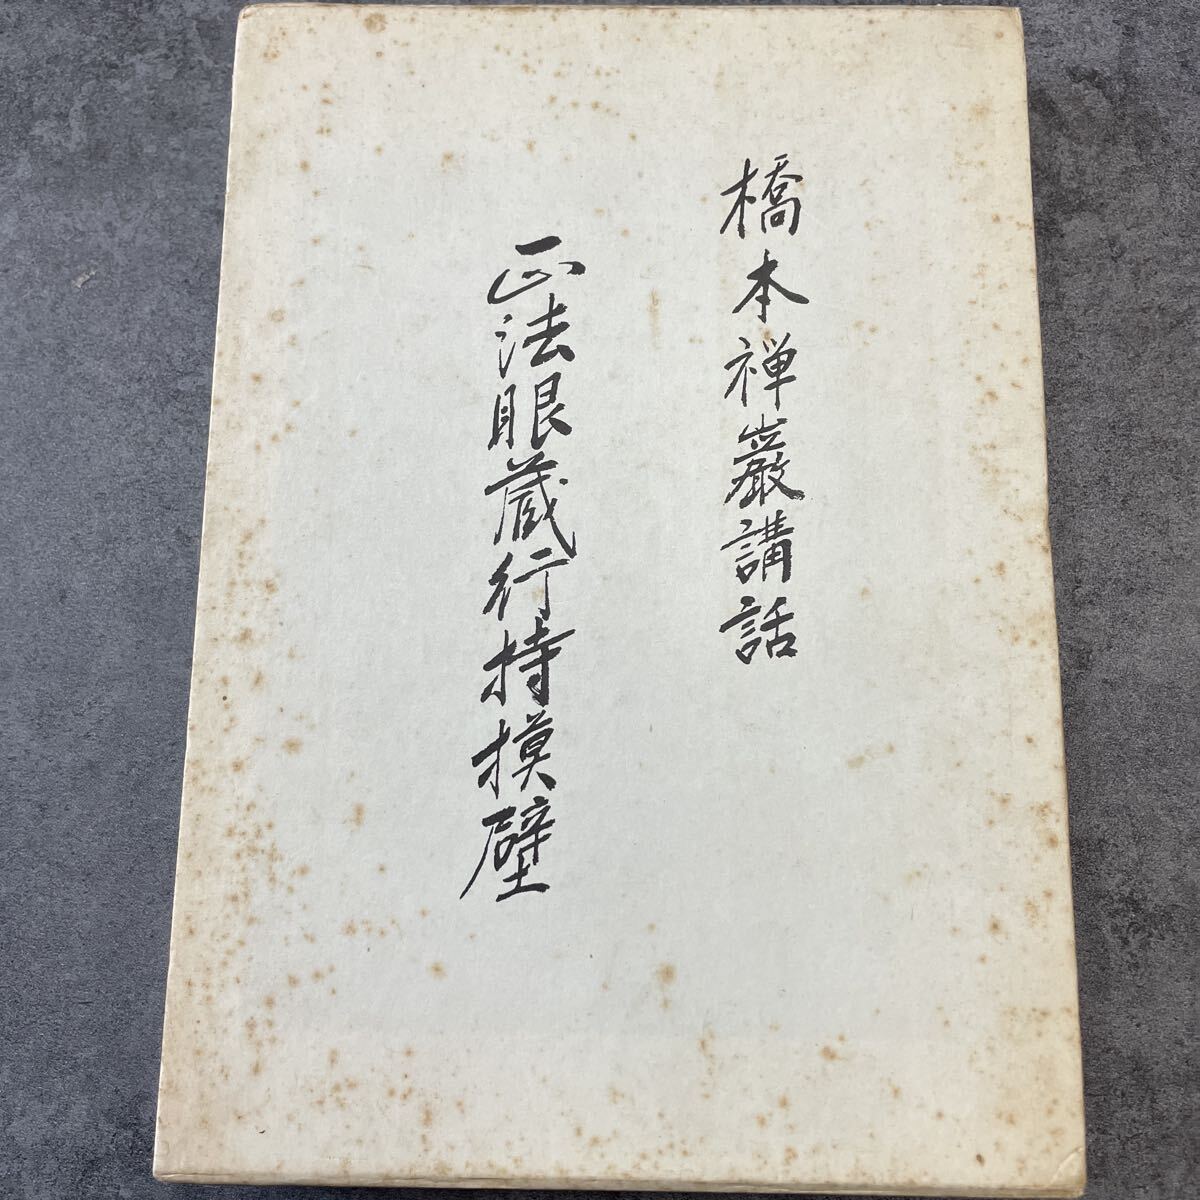 橋本禅巖講話
正法眼蔵行持模壁